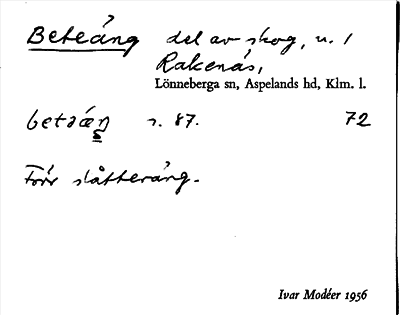 Beteäng del av skog, n. 1
Rakenäs,
Lönneberga sn, Aspelands hd, Klm. l.
s. 87. 72
Förr slåtteräng.
Ivar Modéer 1956